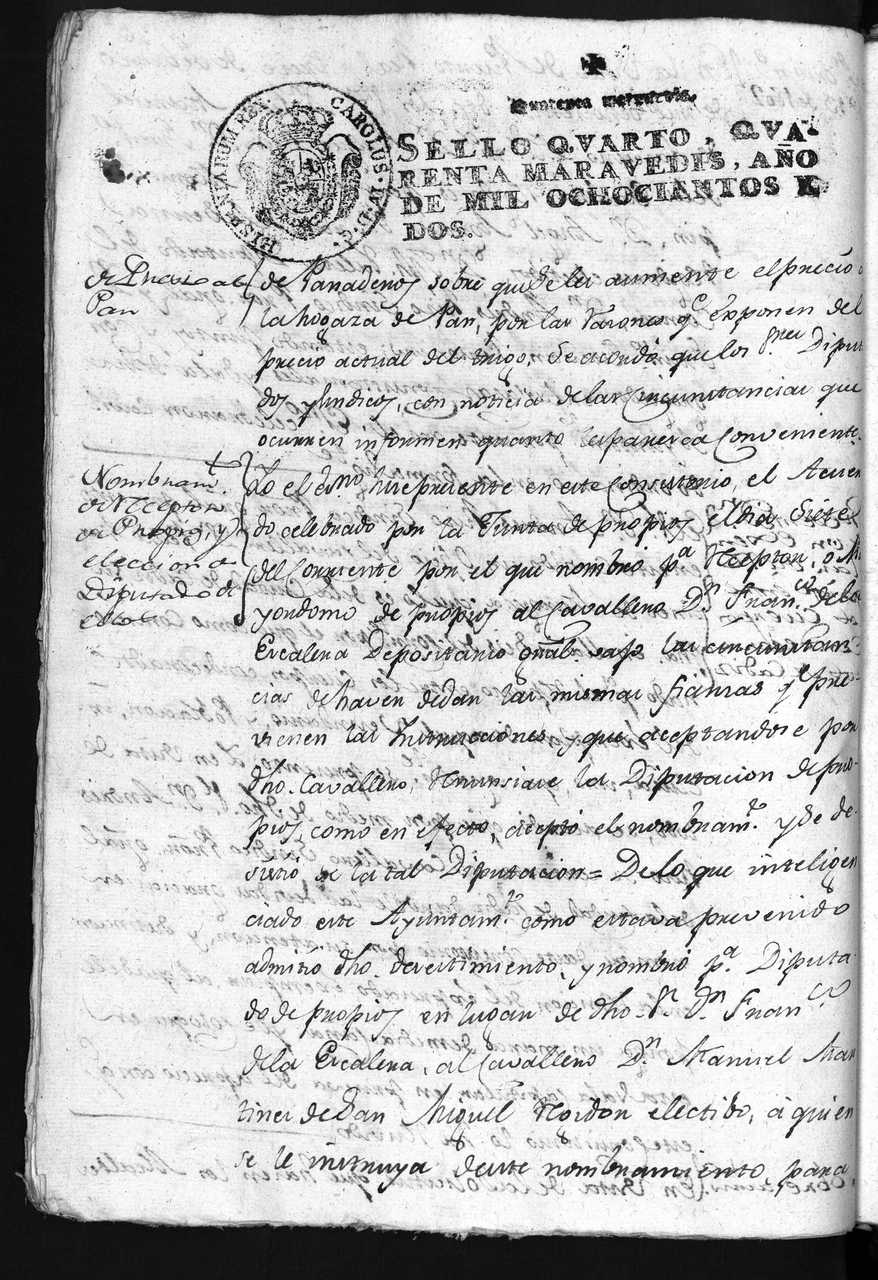 Quarenta maravedis.
SELLO QVARTO, QVA-
RENTA MARAVEDIS, AÑO
DE MIL OCHOCIANTOS Y
DOS.
HISPANIARUM REX. CAROLUS. IV. D. G.
Pan
de Panaderos sobre que se les aumente el precio
la hogaza de Pan, por las razones q.e exponen del
precio actual del trigo, Se acordó que los S.res Diputa
dos y Sindicos, con noticia de las Circunstancias que
ocurren informen quanto les paresca Conveniente.
Nombram.to
de Receptor
de Propios, y
eleccion de
Diputado de
ellos
Yo el Es.no hice presente en este Consistorio, el Acuer
do celebrado por la Junta de propios el dia siete
del Corriente por el que nombró p.a Receptor, o Ma
yordomo de propios al Cavallero D.n Fran.co de la
Escalera Depositario gñal vajo las circunstan
cias de haver de dar las mismas fianzas q.e pre
vienen las Instrucciones y que aceptandose por
dho. Cavallero, renunsiase la Diputacion de pro
pios, como en efecto, aceptó el nombram.to y se de
sistió de la tal Diputacion = De lo que inteligen
ciado este Ayuntam.to como estava prevenido
admitió dho. desestimiento, y nombró p.a Diputa
do de propios en lugar de dho. S.r D.n Fran.co
de la Escalera, al Cavallero D.n Manuel Mar
tines de San Miguel Rexidor electibo, á quien
se le instruya de este nombramiento para